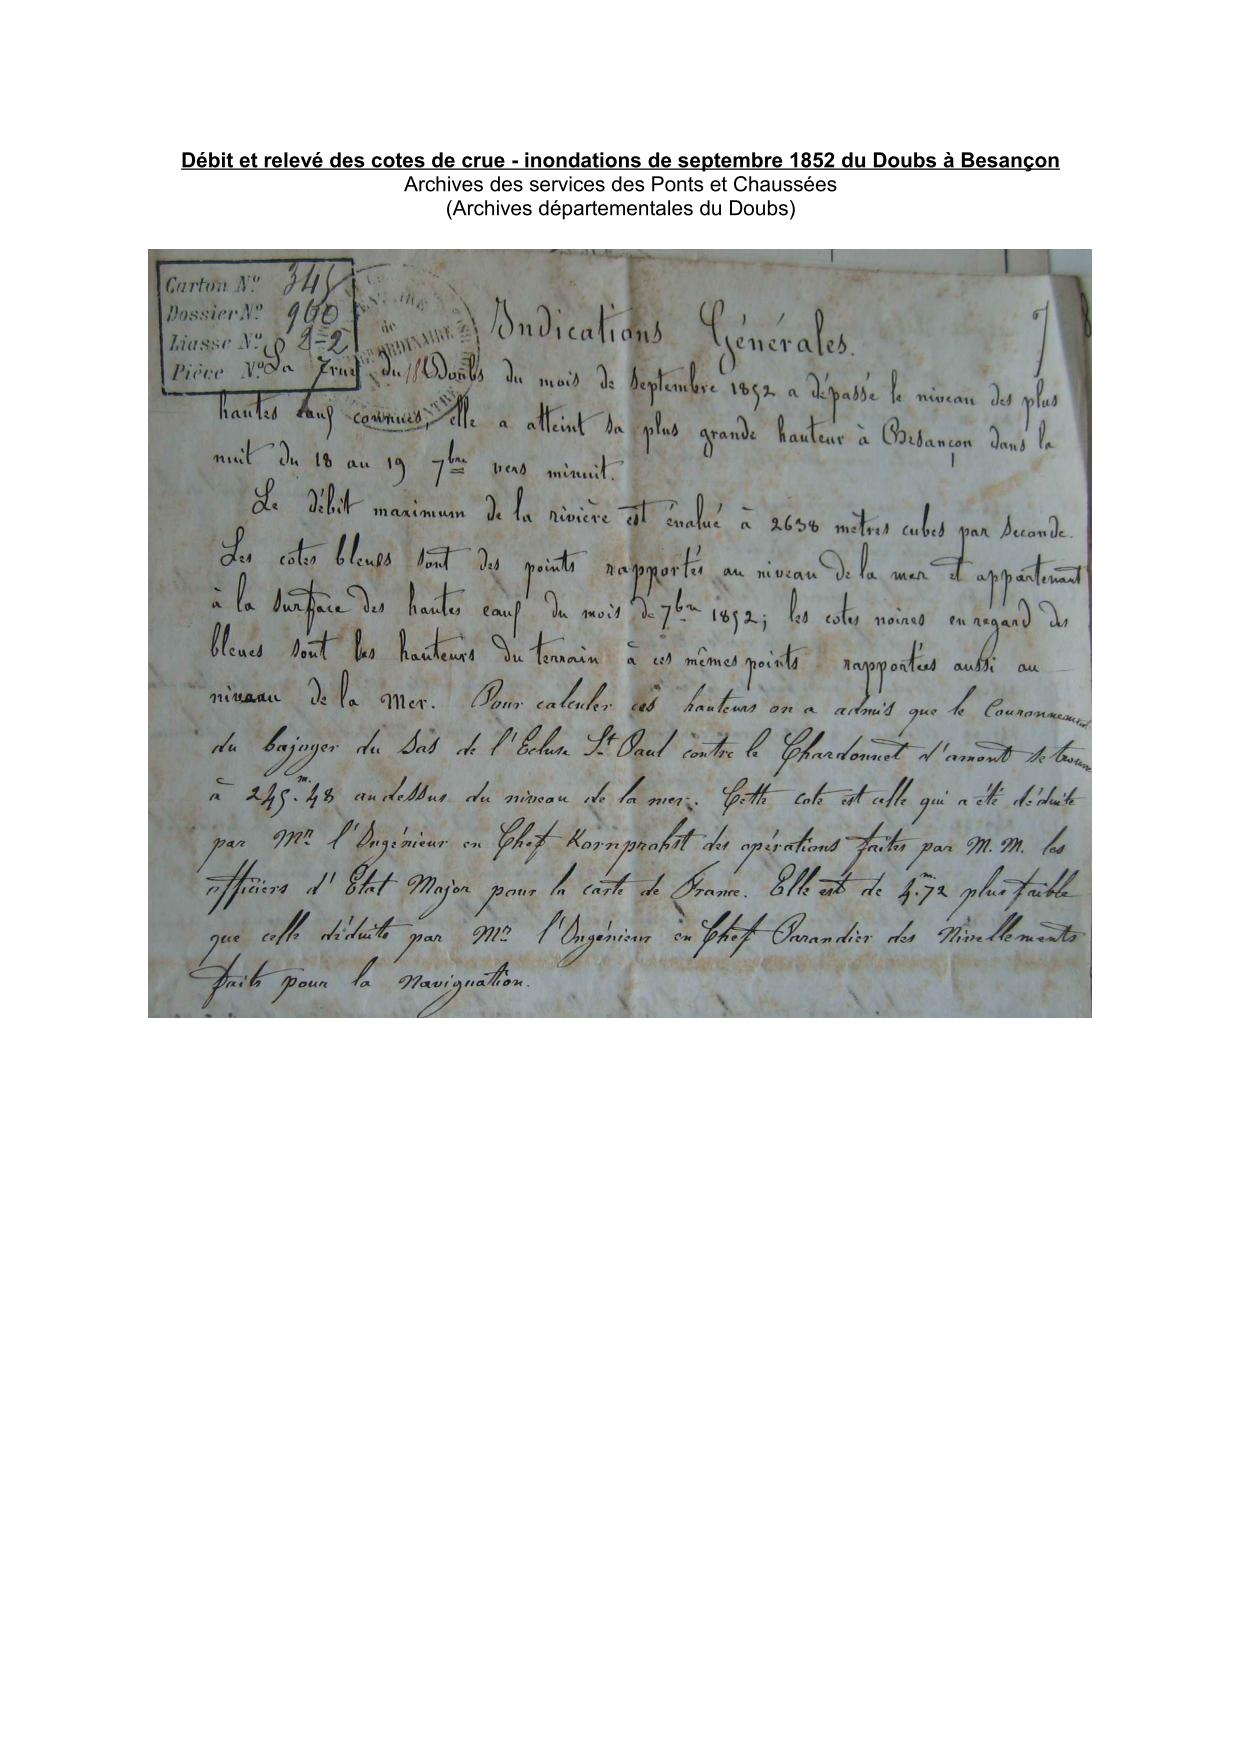 Débit et relevé des cotes de crue - inondations de septembre 1852 du Doubs à Besançon
Archives des services des Ponts et Chaussées
(Archives départementales du Doubs)
Carton Nº 345
Dossier Nº 960
Liasse Nº 2=2
Pièce Nº
Indications Générales. 7
La Crue du Doubs du mois de septembre 1852 a dépassé le niveau des plus
hautes eaux connues, elle a atteint sa plus grande hauteur à Besançon dans la
nuit du 18 au 19 7bre vers minuit.
Le débit maximum de la rivière est évalué à 2638 mètres cubes par seconde.
Les cotes bleues sont des points rapportés au niveau de la mer et appartenant
à la surface des hautes eaux du mois de 7bre 1852; les cotes noires en regard des
bleues sont les hauteurs du terrain à ces mêmes points rapportées aussi au
niveau de la mer. Pour calculer ces hauteurs on a admis que le Couronnement
du bajoyer du Sas de l'Ecluse St Paul contre le Chardonnet d'amont se trouve
à 245.m48 au dessus du niveau de la mer. Cette cote est celle qui a été déduite
par Mr l'Ingénieur en Chef Kornprobst des opérations faites par M.M. les
officiers d'Etat Major pour la carte de France. Elle est de 4.m72 plus faible
que celle déduite par Mr l'Ingénieur en Chef Parandier des Nivellements
faits pour la Navigation.